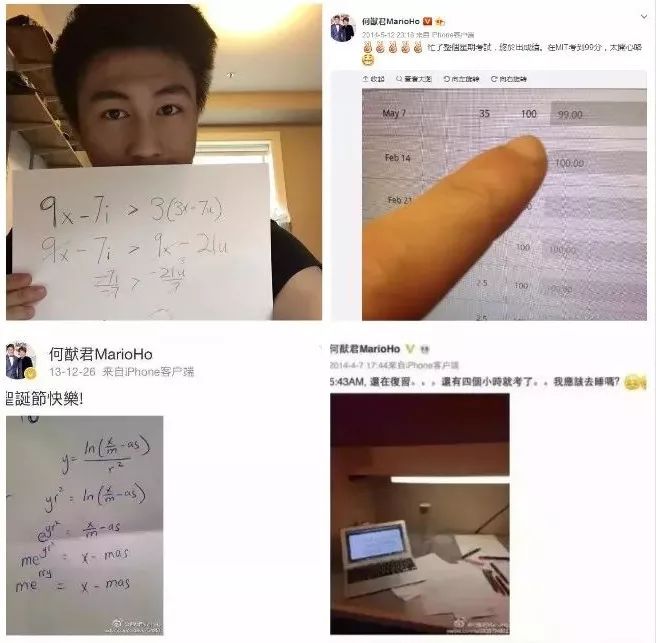 9x-7i > 3(3x-7u)
9x-7i > 9x-21u
-7i/-7 > -21u/7
何猷君MarioHo
2014-5-12 23:18 来自 iPhone客户端
忙了整個星期考試，終於出成績。在MIT考到99分，太開心喎
收起 查看大图 向左旋转 向右旋转
May 7 35 100 99.00
Feb 14 100.00
Feb 21
100 100.00
2.5 100 100.00
2.5
何猷君MarioHo
13-12-26 来自iPhone客户端
聖誕節快樂!
y = ln(x/m-as)/r²
yr² = ln(x/m-as)
e^yr² = x/m-as
me^yr² = x-mas
me^rry = x-mas
何猷君MarioHo
2014-4-7 17:44来自iPhone客户端
5:43AM, 還在復習。。。還有四個小時就考了。。我應該去睡嗎?